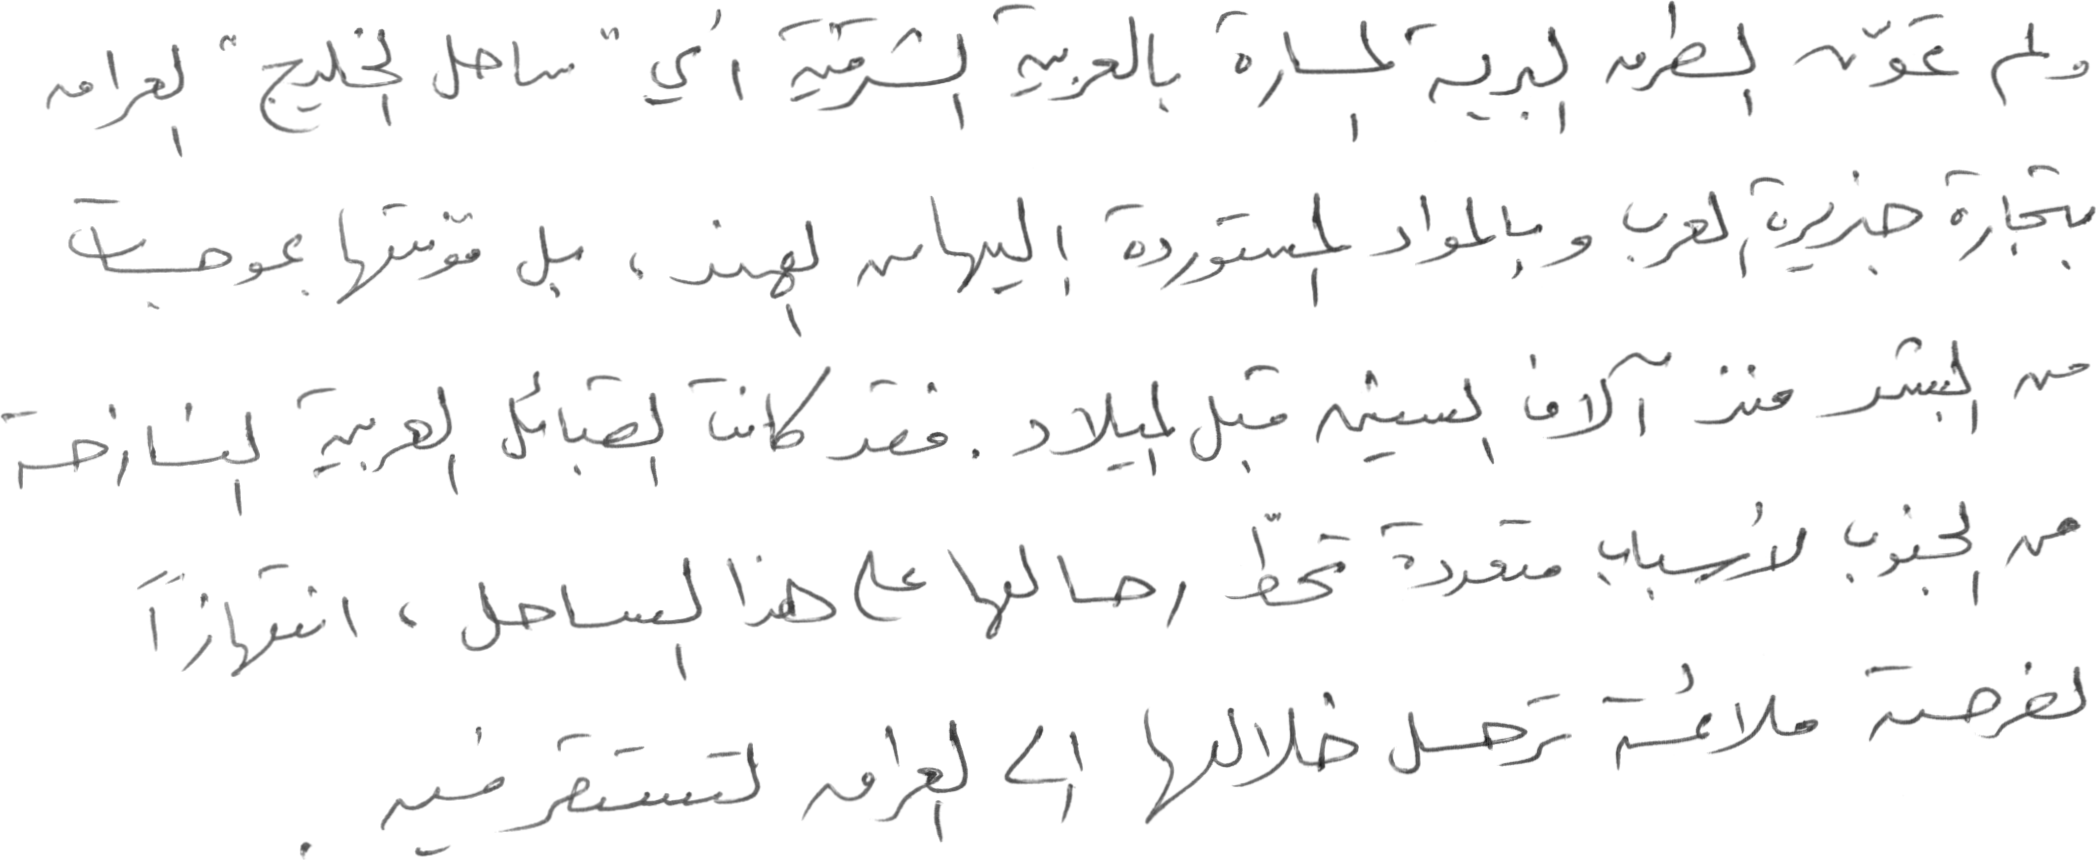 ولم تموّن الطرق البرية المارة بالعربية الشرقية أي "ساحل الخليج" العراق
بتجارة جزيرة العرب وبالمواد المستوردة اليها من الهند ، بل موّنتها بموجات
من البشر منذ آلاف السنين قبل الميلاد . فقد كانت القبائل العربية النازحة
من الجنوب لأسباب متعددة تحطّ رحالها على هذا الساحل ، انتهازاً
لفرصة ملائمة ترحل خلالها الى العراق لتستقر فيه .